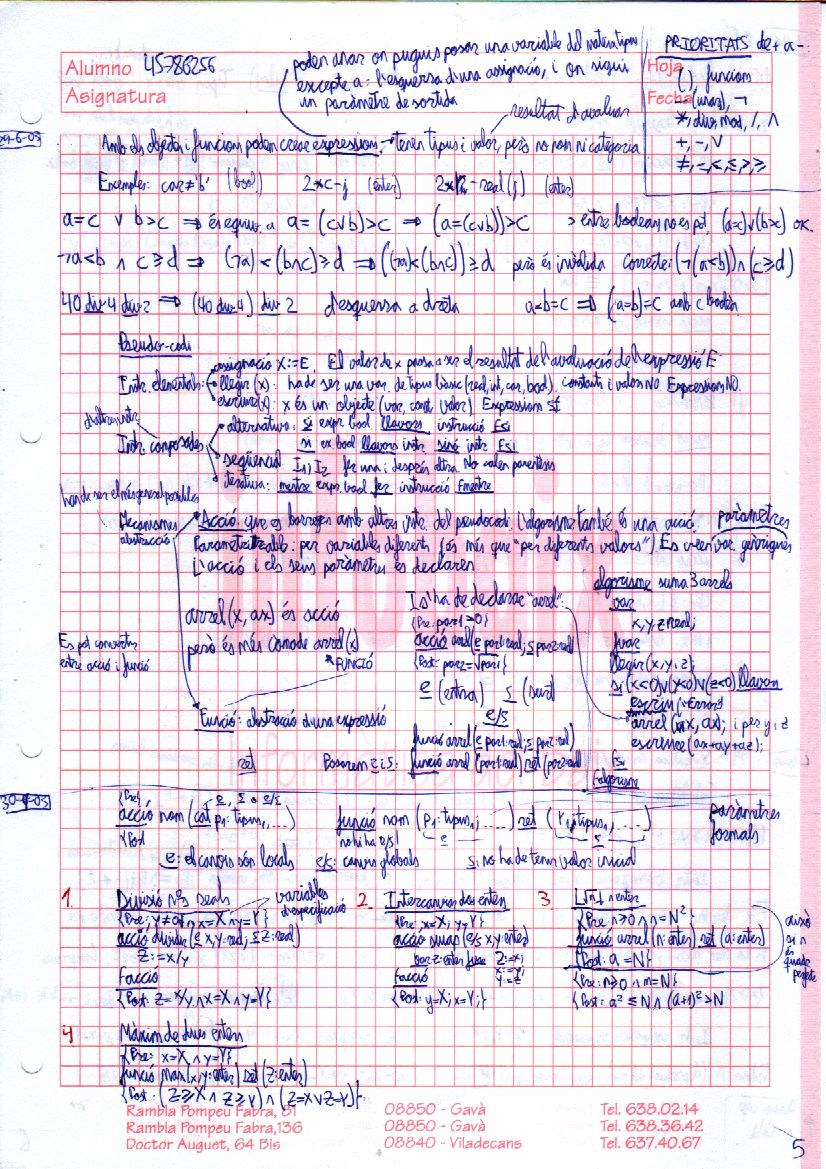 Alumno 45786256
Asignatura
Hoja
Fecha
poden anar on puguis posar una variable del mateix tipus
excepte a: l'esquerra d'una assignació, i on sigui
un paràmetre de sortida
PRIORITATS de + a -
( ), funcions
- (unari), ¬
*, div, mod, /, ∧
+, -, ∨
≠, =, <, ≤, >, ≥
resultat d'avaluar
Amb els objectes i funcions podem crear expressions → tenen tipus i valor, però no nom ni categoria
Exemples: car≠'b' (bool) 2*c-j (enter) (enter)
a=c ∨ b>c ⇒ és equiv. a a=(c∨b)>c ⇒ (a=(c∨b))>c > entre booleans no es pot, (a=c)∨(b>c) OK.
¬a<b ∧ c≥d ⇒ (¬a)<(b∧c)≥d ⇒ ((¬a)<(b∧c))≥d però és invàlida correcte: (¬(a<b))∧(c≥d)
40 div 4 div 2 ⇒ (40 div 4) div 2 d'esquerra a dreta a=b=c ⇒ (a=b)=c amb c booleà
Pseudo-codi
assignació X:=E. El valor de x passa a ser el resultat de l'avaluació de l'expressió E
Instr. elementals: llegir(x): ha de ser una var. de tipus bàsic (real, int, car, bool), constants i valors NO Expressions NO.
escriure(x): x és un objecte (var, const, valor) Expressions SÍ
d'altres instr
Instr. composades
alternativa: si expr bool llavors instrucció fsi
si ex bool llavors instr sinó instr fsi
seqüencial I1; I2 fer una i després l'altra. No calen parèntesis
iterativa: mentre expr. bool fer instrucció fmentre
han de ser el més general possibles
Mecanismes
abstracció
Acció: que es barregen amb altres instr. del pseudocodi. L'algorisme també és una acció. paràmetres
Parametritzable: per variables diferents (és més que "per diferents valors") Es creen var. genèriques
L'acció i els seus paràmetres es declaren
arrel(x, ax) és acció
però és més còmode arrel(x)
FUNCIÓ
Es pot convertir
entre acció i funció
I s'ha de declarar "arrel":
{Pre: par1≥0}
acció arrel(e par1:real; s par2:real)
{Post: par2=√par1}
e (entra) s (surt)
e/s
algorisme suma 3 arrels
var
x, y, z: real;
fvar
llegir(x, y, z);
si (x<0)∨(y<0)∨(z<0) llavors
escriu("Error")
arrel(x, ax); i per y, z
escriure(ax+ay+az);
fsi
falgorisme
Funció: abstracció d'una expressió
funció arrel(e par1:real; s par2:real)
ret Posarem e i s: funció arrel (par1:real) ret (par2:real)
30-6-03
{Pre} e, s o e/s
acció nom (cat p1: tipus1, ...) funció nom (p1: tipus1; ....) ret (r1: tipus1, ....) paràmetres
{Post no hi ha e/s! e s formals
e: el canvis són locals e/s: canvis globals s: no ha de tenir valor inicial
1. Divisió nºs reals
variables
d'especificació
{Pre: y≠0 ∧ x=X ∧ y=Y}
acció dividir (e x,y:real; s z:real)
z:=x/y
facció
{Post: z=x/y ∧ x=X ∧ y=Y}
2. Intercanviar dos enters
{Pre: x=X; y=Y}
acció swap (e/s x,y:enter)
var z:enter fvar z:=x;
x:=y;
y:=z
facció
{Post: y=X; x=Y;}
3. √n enter
{Pre: n≥0 ∧ n=N²}
funció arrel (n:enter) ret (a:enter)
{Post: a=N}
{Pre: n≥0 ∧ n=N}
{Post: a²≤N ∧ (a+1)²>N
això
si n
és
quadrat
perfecte
4 Màxim de dues enters
{Pre: x=X ∧ y=Y}
funció max(x,y:enter) ret (z:enter)
{Post: (z≥X ∧ z≥Y) ∧ (z=X∨z=Y)}
Rambla Pompeu Fabra, 81 08850 - Gavà Tel. 638.02.14
Rambla Pompeu Fabra,136 08850 - Gavà Tel. 638.36.42
Doctor Auguet, 64 Bis 08840 - Viladecans Tel. 637.40.67
5